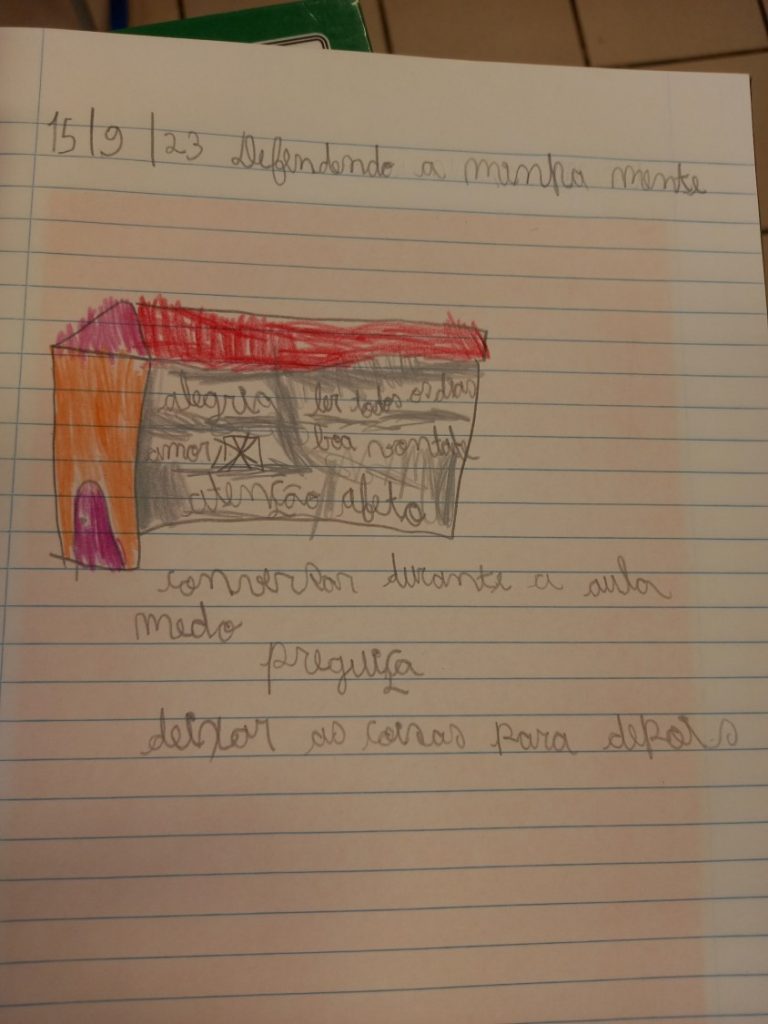 15/9/23 Defendendo a minha mente
alegria ler todos os dias
amor boa vontade
atenção afeto
conversar durante a aula
medo
preguiça
deixar as coisas para depois